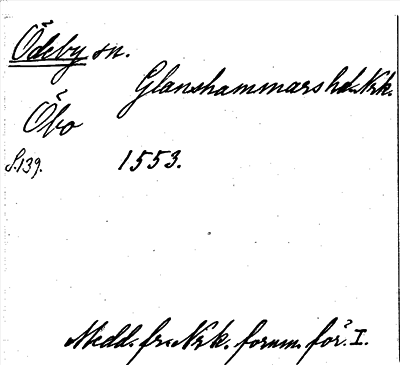 Ödeby sn.
Glanshammars hd. Nrk.
Öbo
S.139. 1553.
Medd. fr. Nrk. fornm. för. I.